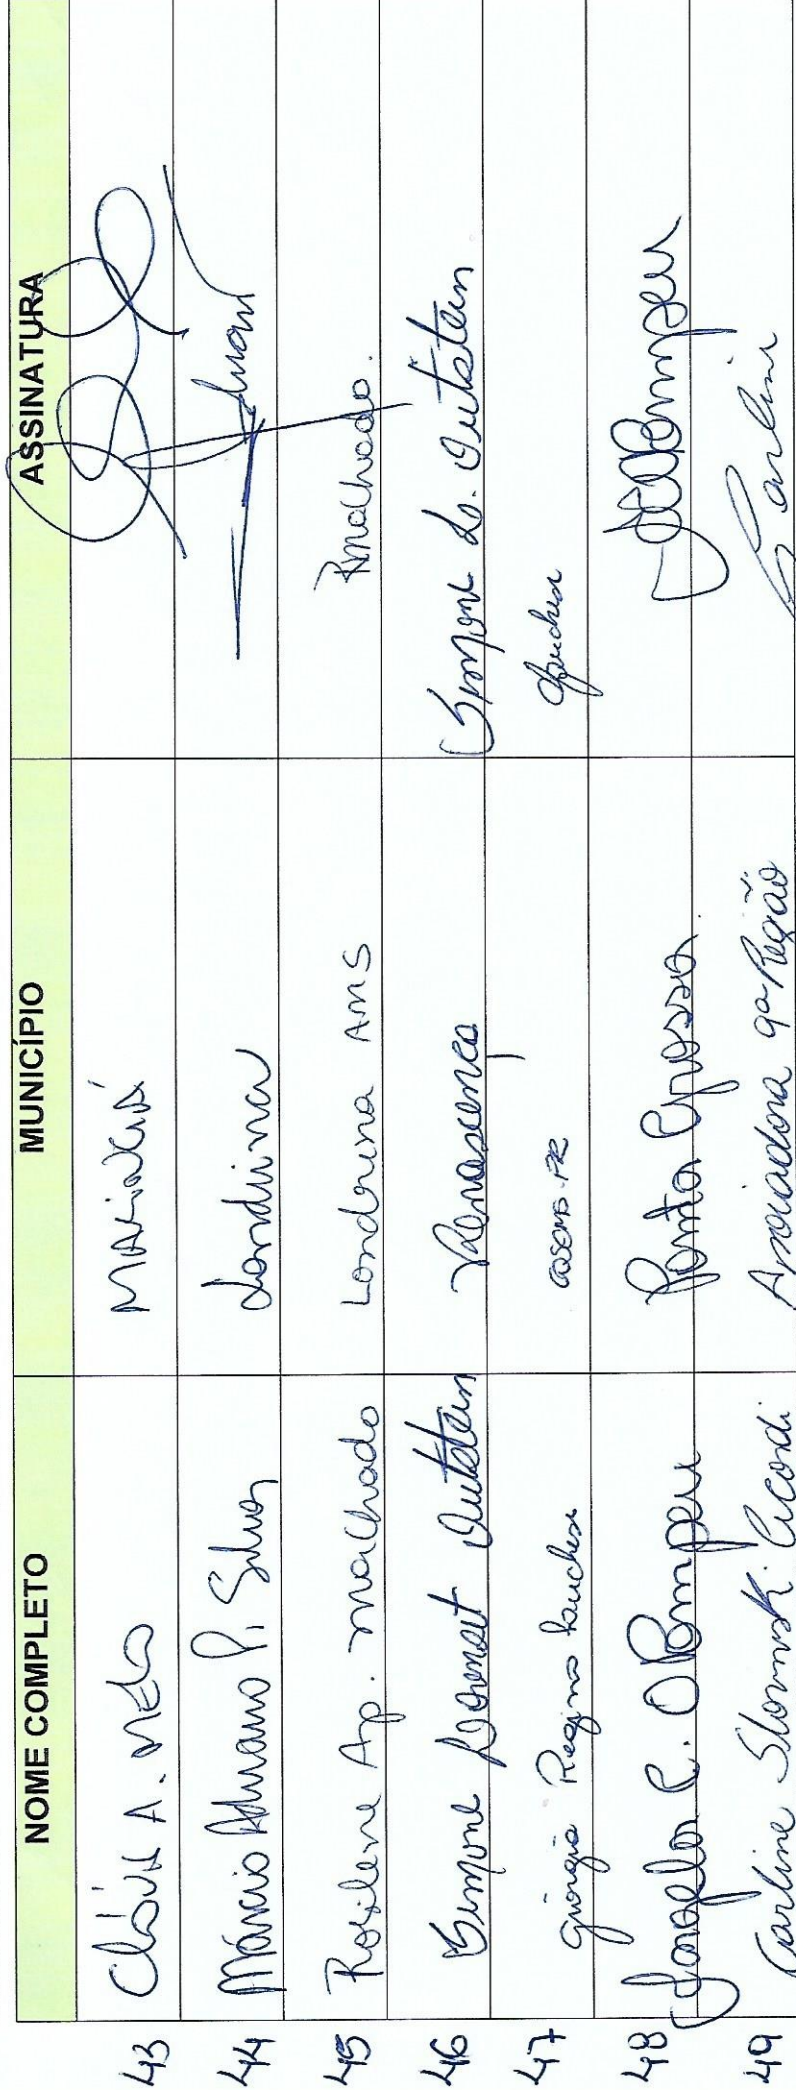 NOME COMPLETO MUNICÍPIO ASSINATURA
43 Clóvis A. Melo MARINGÁ
44 Márcio Adriano P. Silva Londrina
45 Rosilene Ap. Machado Londrina AMS RMachado.
46 Simone Renascença Simone
47 Giorgia Regina Luchese COSEMS-PR Luchese
48 Angela C. O Pompeu Ponta Grossa. Pompeu
49 Carline Slovinski Acordi Apoiadora 9ª Região Carline